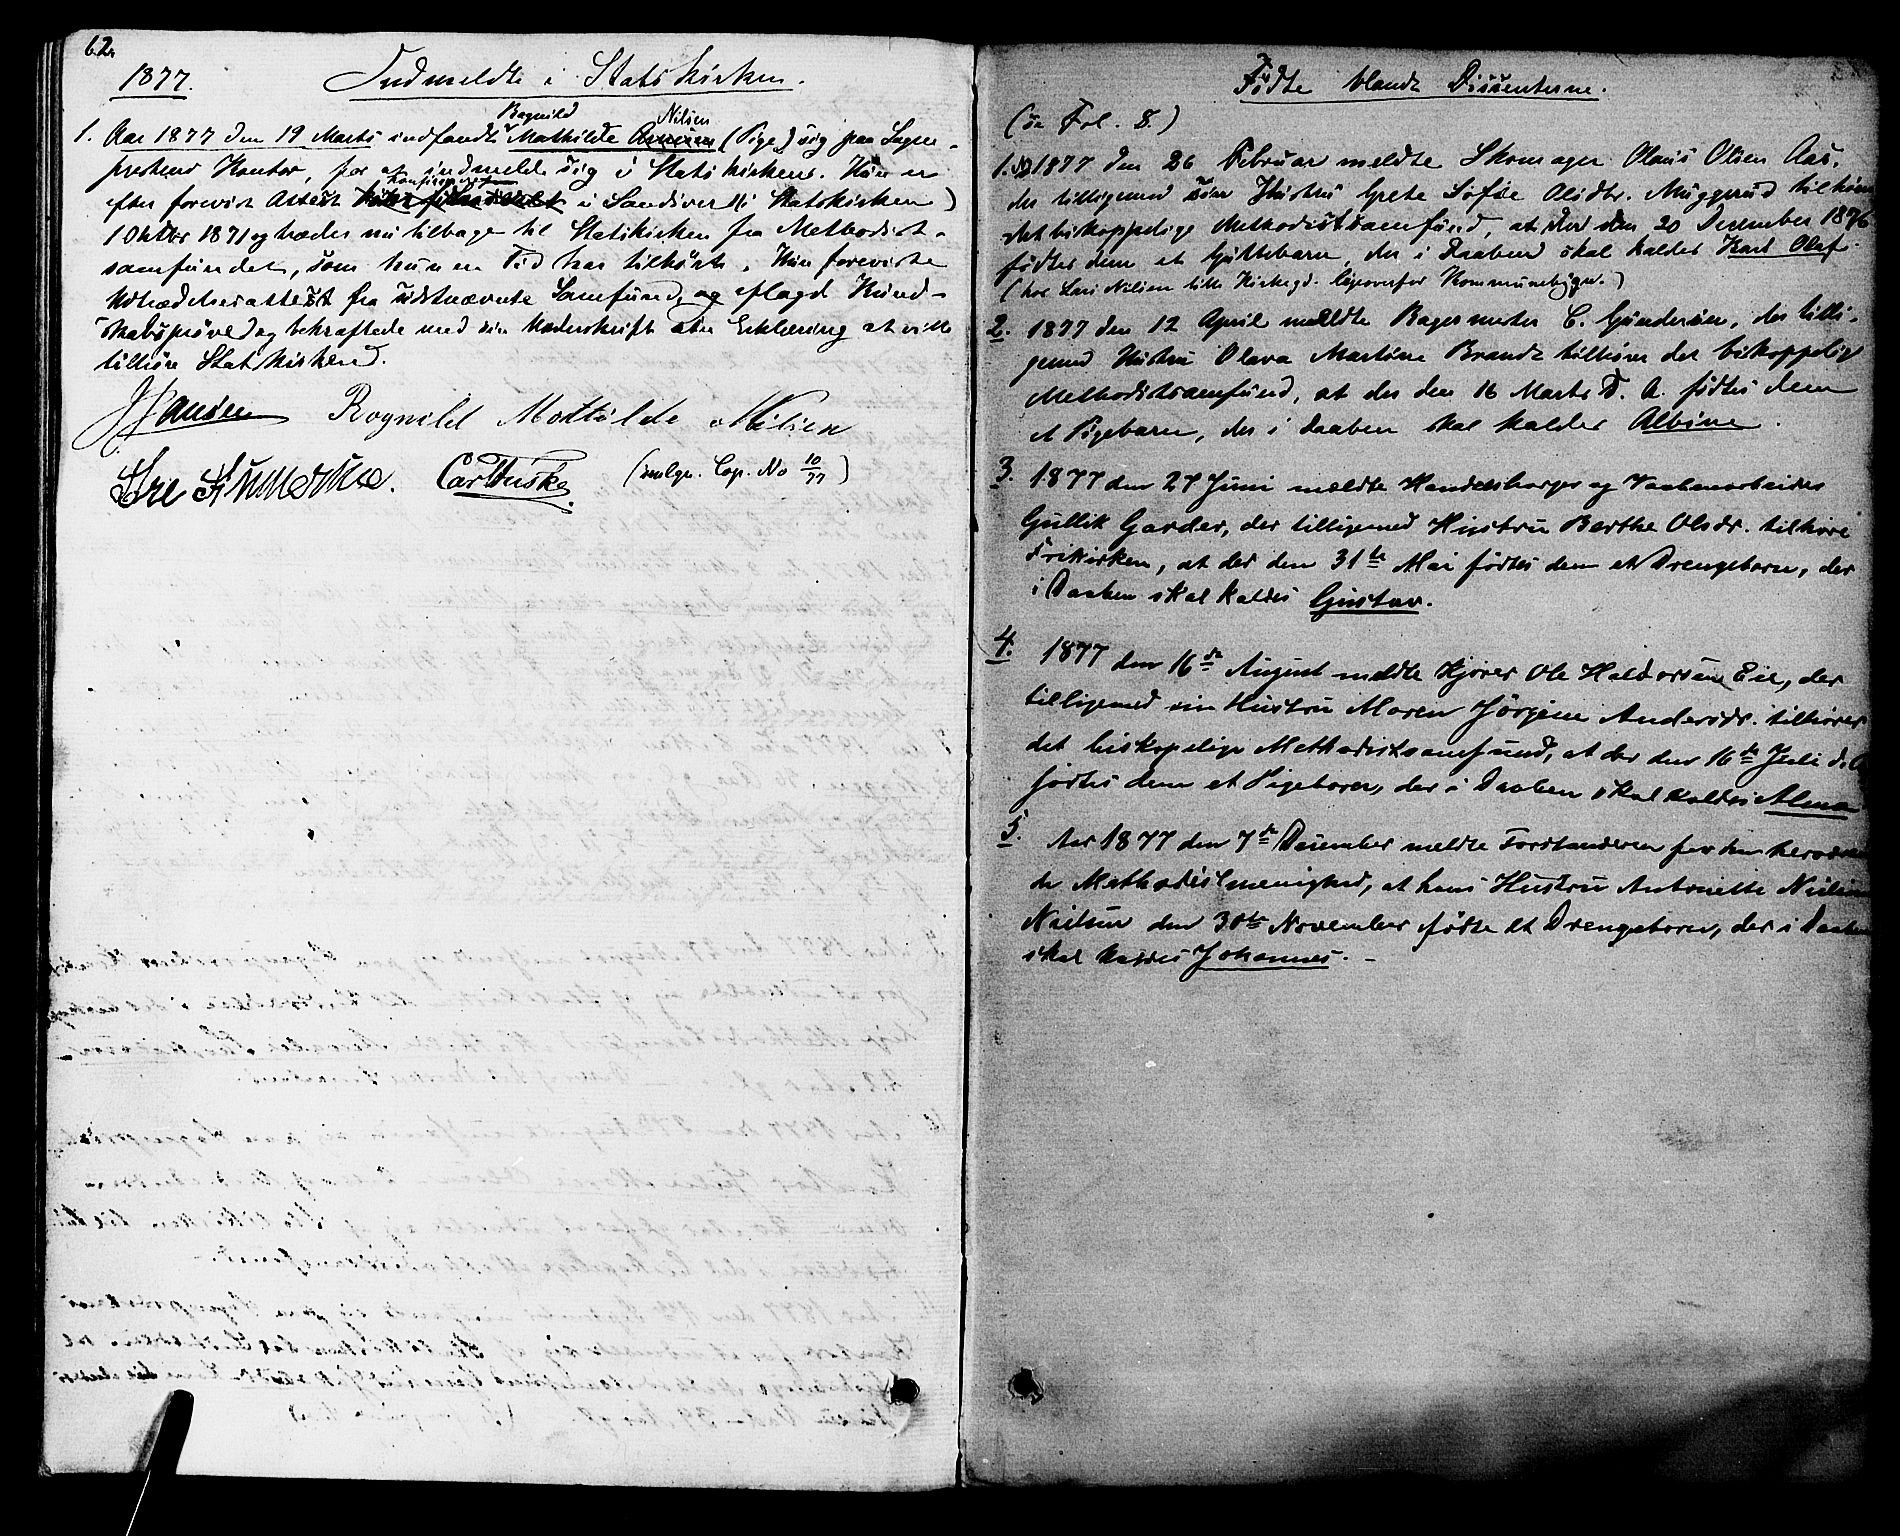 62.
1877.
Indmeldte i Statskirken.
Ragnild Nilsen
1. Aar 1877 den 19 Marts indfandt Mathilde (Pige) sig paa Sogne-
prestens Kontor, for at indmelde sig i Statskirken. Hun er
konfirmeret
efter forevist Attest i (i Statskirken)
1 Oktbr 1871 og træder nu tilbage til Statskirken fra Methodist-
samfundet, som hun en Tid har tilhørt. Hun foreviste
Udtrædelsesattest fra sidstnævnte Samfund, og aflagd Kund-
skabsprøve og bekræftede med sin Underskrift Erklæring at ville
tilhøre Statskirken.
J Hansen Ragnild Mathilde Nilsen
Carl Huske. (Cop. No 10/77)
Fødte blandt Dissenterne.
(se Fol. 8.)
1. 1877 den 26 Februar meldte Skomager Olaus Olsen Aas,
der tilligemed sin Hustru Grete Sofie Olsdtr. Muggerud tilhører
det biskoppelige Methodistsamfund, at der den 20 December 1876
fødtes dem et Guttebarn, der i Daaben skal kaldes Karl Olaf.
(hos Lars Nilsen lille Kirkegd. ligeoverfor Kommunebygn.)
2. 1877 den 12 April meldte Bagermester C. Gundersen, der tilli-
gemed Hustru Olava Martine Brandt tilhører det biskoppelig
Methodistsamfund, at der den 16 Marts D. A. fødtes dem
et Pigebarn, der i Daaben skal kaldes Albine.
3. 1877 den 27 Juni meldte Handelsborger og Vaabenarbeider
Gullik Garder, der tilligemed Hustru Berthe Olsdr. tilhøre
Frikirken, at der den 31te Mai fødtes dem et Drengebarn, der
i Daaben skal kaldes Gustav.
4. 1877 den 16de August meldte Kjører Ole Haldorsen Eie, der
tilligemed sin Hustru Maren Jørgine Andersdr. tilhører
det biskopelige Methodistsamfund, at der den 16de Juli d. A.
fødtes dem et Pigebarn, der i Daaben skal kaldes Alma
5. Aar 1877 den 7de December meldte Forstanderen for den herværen
de Methodistmenighed, at hans Hustru Antonette
Nielsen den 30te November fødte et Drengebarn, der i Daaben
skal kaldes Johannes. -